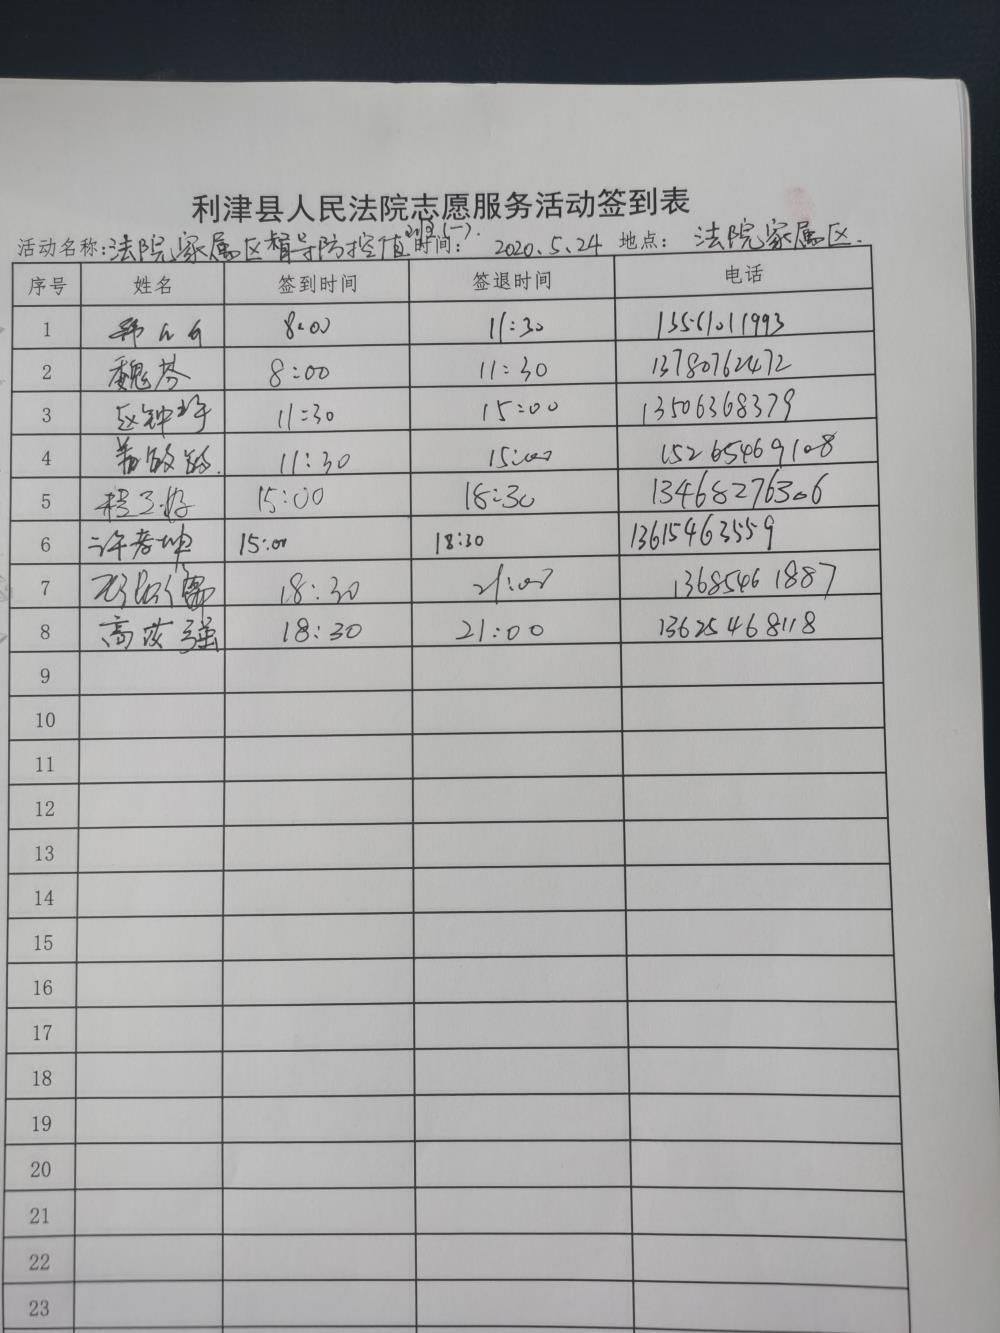 利津县人民法院志愿服务活动签到表
活动名称:法院家属区督导防控值班(一). 时间: 2020.5.24 地点: 法院家属区.
序号 姓名 签到时间 签退时间 电话
1 8:00 11:30 13561011993
2 魏芩 8:00 11:30 13780762472
3 11:30 15:00 13506368379
4 11:30 15:00 15265469108
5 15:00 18:30 13468276306
6 许孝坤 15:00 18:30 13615463559
7 18:30 21:00 13685461887
8 高茂强 18:30 21:00 13625468118
9
10
11
12
13
14
15
16
17
18
19
20
21
22
23